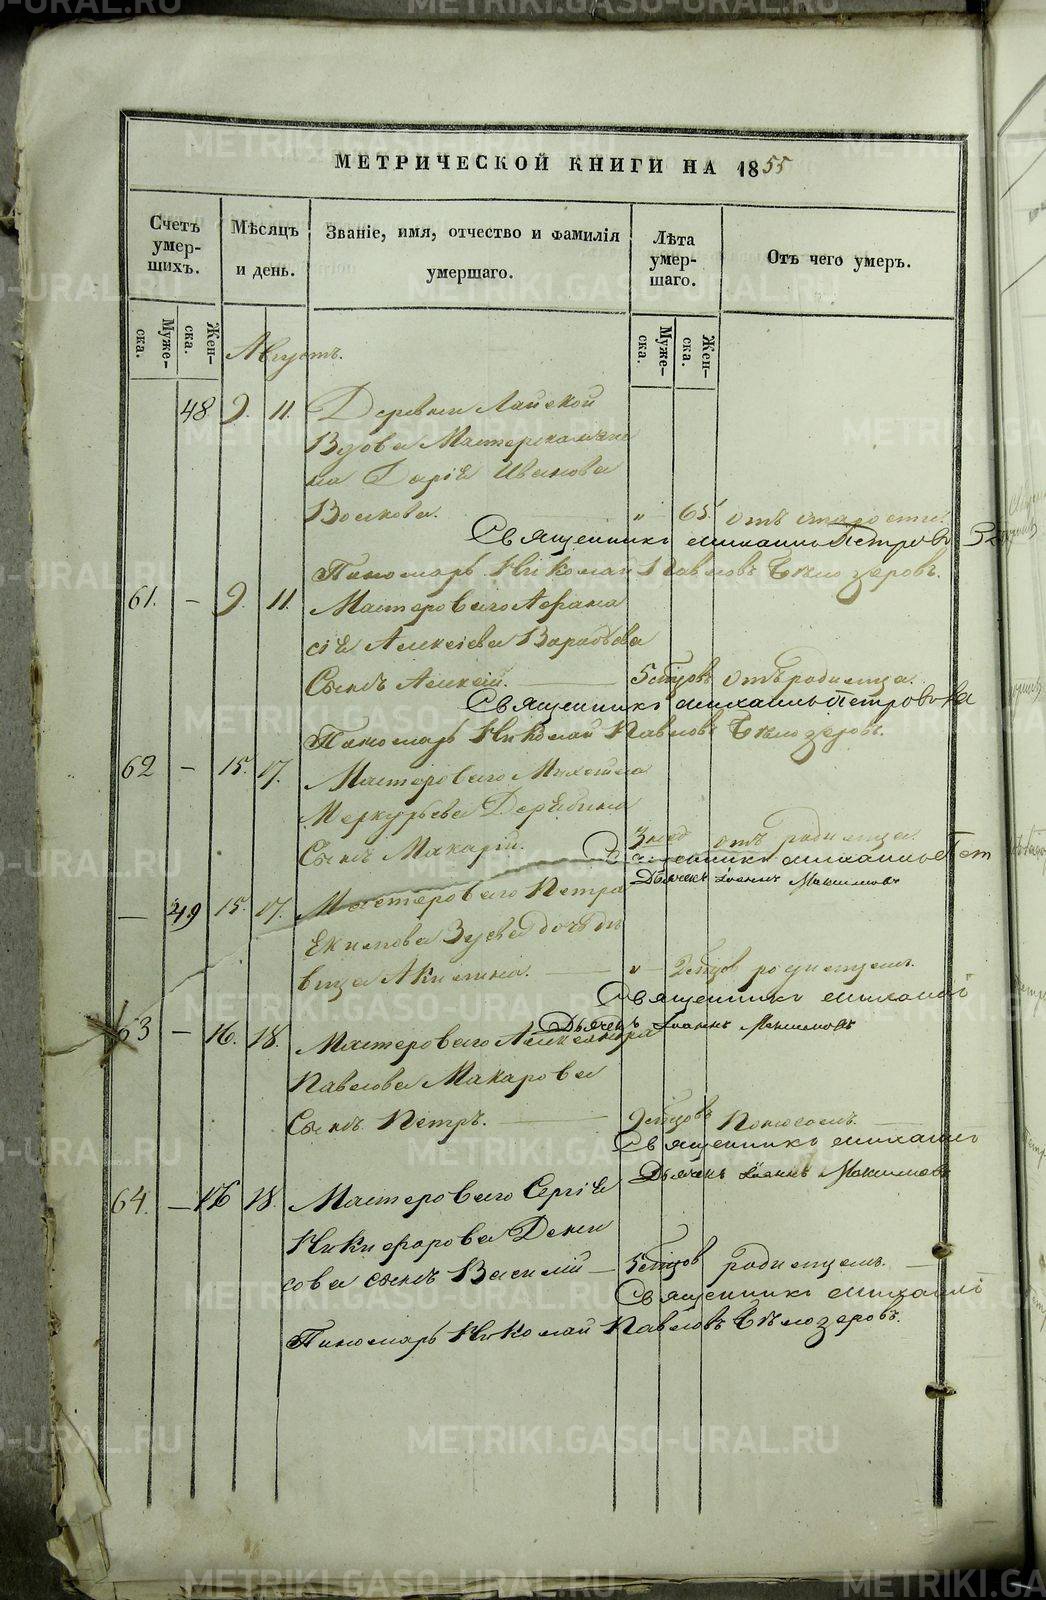 МЕТРИЧЕСКОЙ КНИГИ НА 1855
Счетъ умер-шихъ.
Мѣсяцъ и день.
Званіе, имя, отчество и фамилія умершаго.
Лѣта умер-шаго.
Отъ чего умеръ.
Муже-ска.
Жен-ска.
Муже-ска.
Жен-ска.
Августъ.
48 9. 11. Деревни Лайской
Вдова Мастерская
на Дарія Иванова
Волкова. " 65. отъ старости.
Священникъ Михаилъ Петровъ
Пономарь Николай Павловъ Бѣлозеровъ.
61. — 9. 11. Мастероваго Афана
сія Алексіева Воробьева
Сынъ Алексѣй. 5 бцовъ отъ родимца.
Священникъ Михаилъ Петровъ
Пономарь Николай Павловъ Бѣлозеровъ.
62 — 15. 17. Мастероваго Михаила
Меркурьева Дерябина
Сынъ Макарій. 3 нед отъ родимца.
Священникъ Михаилъ Пет
Дьячекъ Іоаннъ Максимовъ
— 49 15. 17. Мастероваго Петра
Екимова Зуева дочь дѣ
вица Акилина. " 2 бцов родимцемъ.
Священникъ Михаилъ
Дьячекъ Іоаннъ Максимовъ
63 — 16. 18. Мастероваго Александра
Павлова Макарова
Сынъ Петръ. 9 бцовъ Поносомъ.
Священникъ Михаилъ
Дьячекъ Іоаннъ Максимовъ
64. — 16 18. Мастероваго Сергія
Никифорова Дени
сова сынъ Василій — 5 бцов родимцемъ.
Священникъ Михаилъ
Пономарь Николай Павловъ Бѣлозеровъ.
METRIKI.GASO-URAL.RU